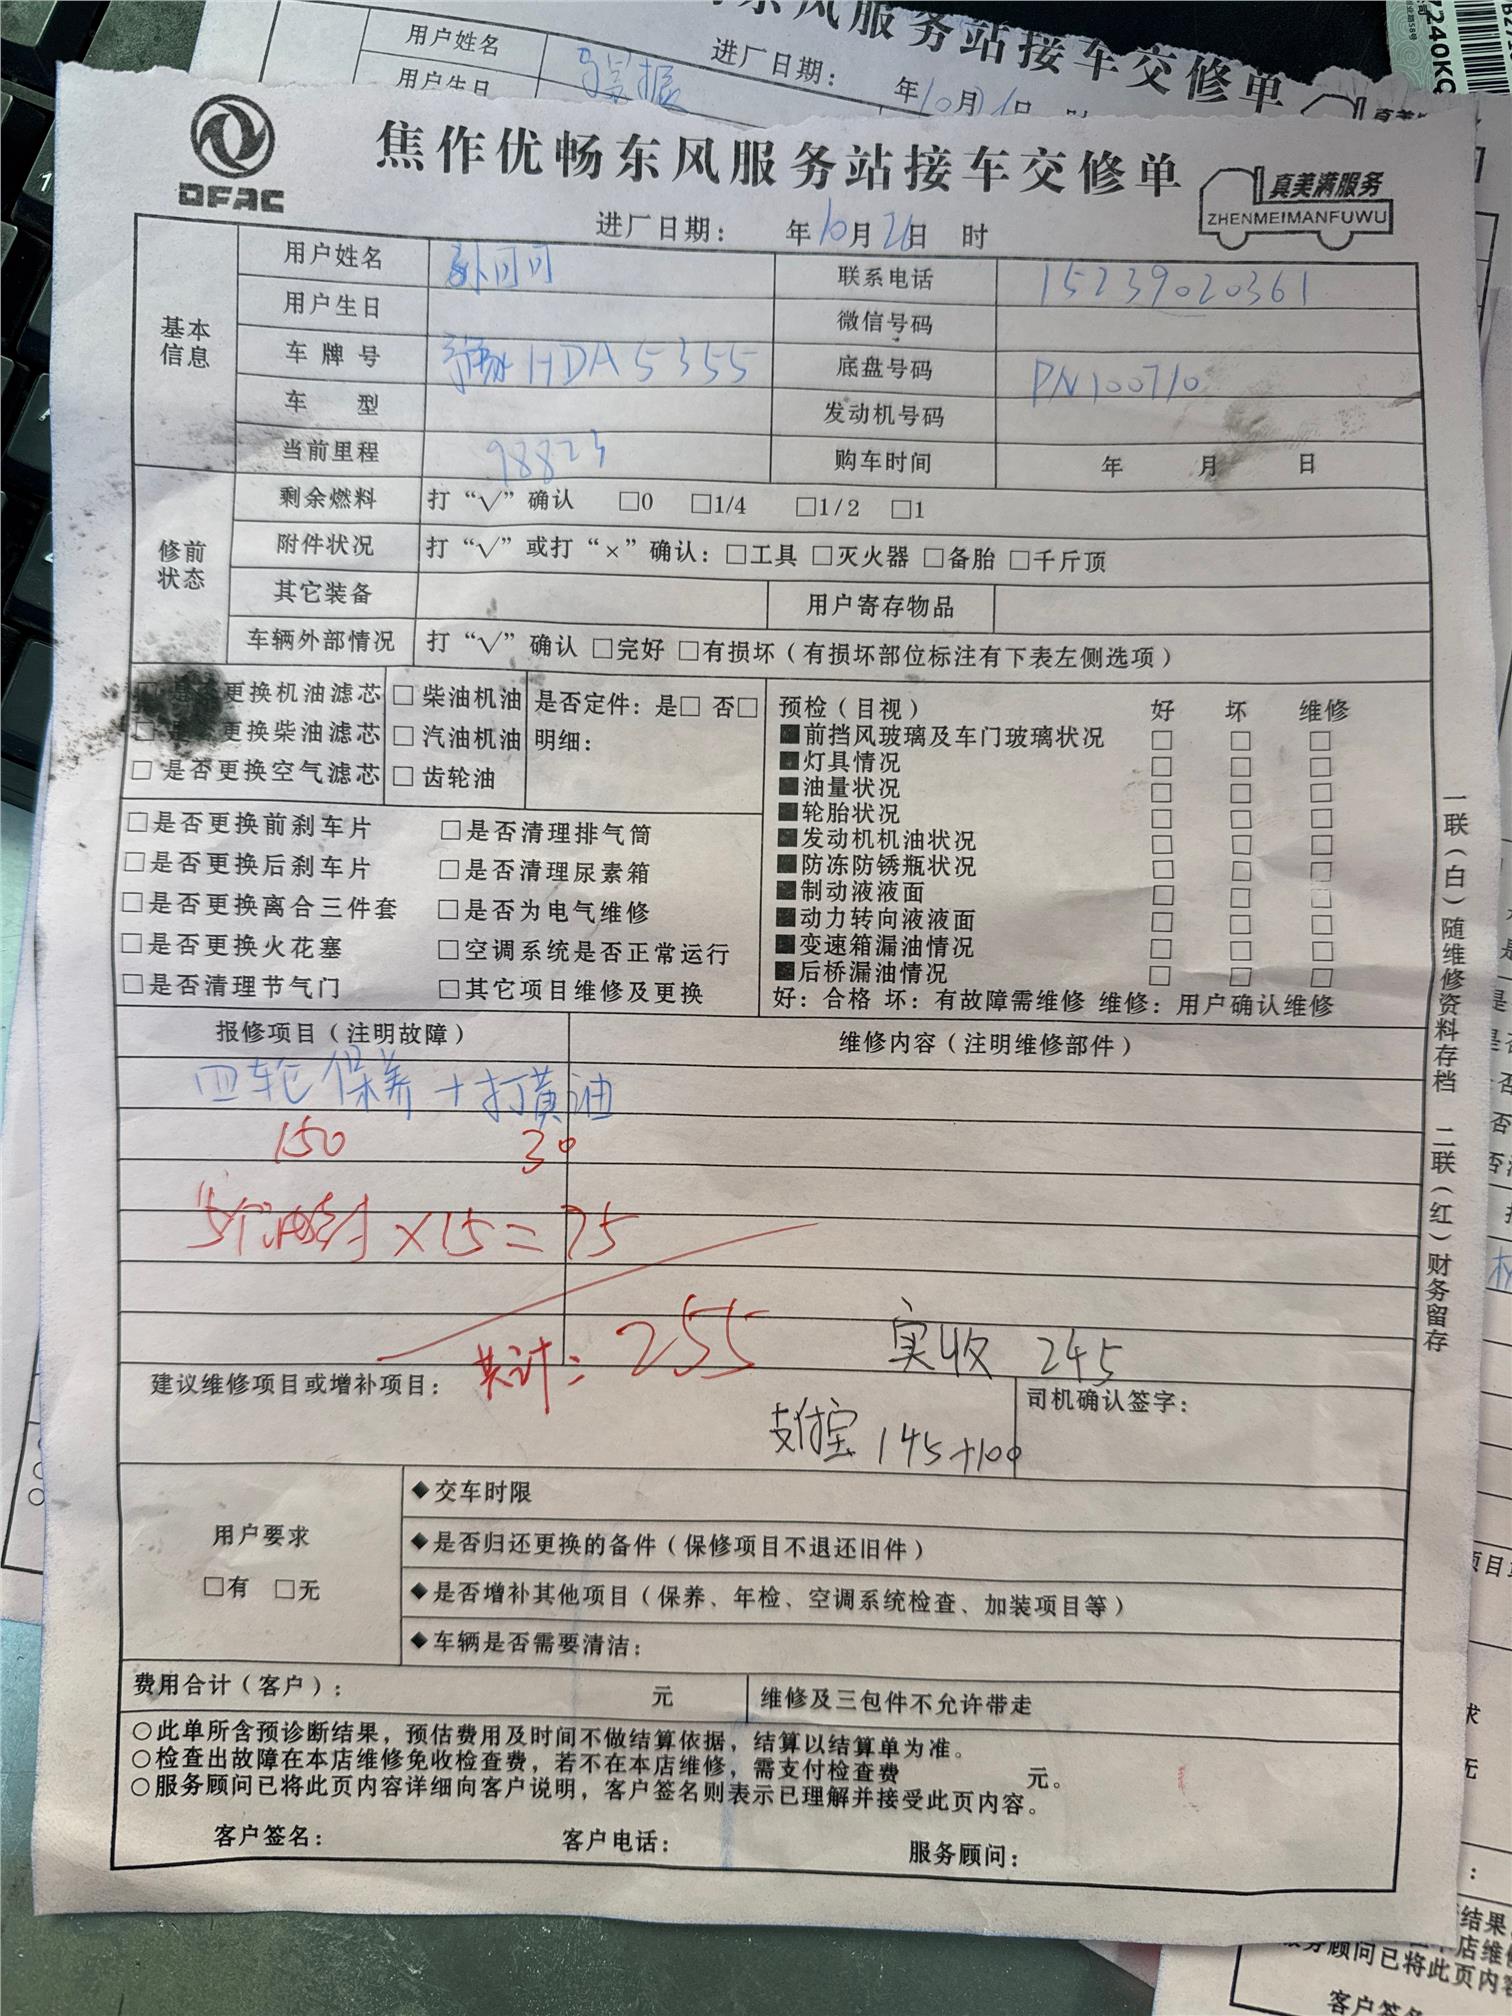 用户姓名
用户生日
东风服务站接车交修单
进厂日期： 年10月 日
7240KG
DFAC
焦作优畅东风服务站接车交修单
真美满服务
ZHENMEIMANFUWU
进厂日期： 年10月26日 时
基本信息
用户姓名 孙可可 联系电话 15239020361
用户生日 微信号码
车牌号 HDA5355 底盘号码 PN100710
车型 发动机号码
当前里程 98823 购车时间 年 月 日
修前状态
剩余燃料 打“√”确认 □0 □1/4 □1/2 □1
附件状况 打“√”或打“×”确认：□工具 □灭火器 □备胎 □千斤顶
其它装备 用户寄存物品
车辆外部情况 打“√”确认 □完好 □有损坏（有损坏部位标注有下表左侧选项）
更换机油滤芯 □柴油机油 是否定件：是□ 否□
更换柴油滤芯 □汽油机油 明细：
□是否更换空气滤芯 □齿轮油
□是否更换前刹车片 □是否清理排气筒
□是否更换后刹车片 □是否清理尿素箱
□是否更换离合三件套 □是否为电气维修
□是否更换火花塞 □空调系统是否正常运行
□是否清理节气门 □其它项目维修及更换
预检（目视） 好 坏 维修
■前挡风玻璃及车门玻璃状况 □ □ □
■灯具情况 □ □ □
■油量状况 □ □ □
■轮胎状况 □ □ □
■发动机机油状况 □ □ □
■防冻防锈瓶状况 □ □ □
■制动液液面 □ □ □
■动力转向液液面 □ □ □
■变速箱漏油情况 □ □ □
■后桥漏油情况 □ □ □
好：合格 坏：有故障需维修 维修：用户确认维修
报修项目（注明故障） 维修内容（注明维修部件）
四轮保养+打黄油
150 30
5个油封×15=75
共计：255 实收 245
建议维修项目或增补项目： 司机确认签字：
支付宝 145+100
用户要求
□有 □无
◆交车时限
◆是否归还更换的备件（保修项目不退还旧件）
◆是否增补其他项目（保养、年检、空调系统检查、加装项目等）
◆车辆是否需要清洁：
费用合计（客户）： 元 维修及三包件不允许带走
○此单所含预诊断结果，预估费用及时间不做结算依据，结算以结算单为准。
○检查出故障在本店维修免收检查费，若不在本店维修，需支付检查费 元。
○服务顾问已将此页内容详细向客户说明，客户签名则表示已理解并接受此页内容。
客户签名： 客户电话： 服务顾问：
一联（白）随维修资料存档 二联（红）财务留存